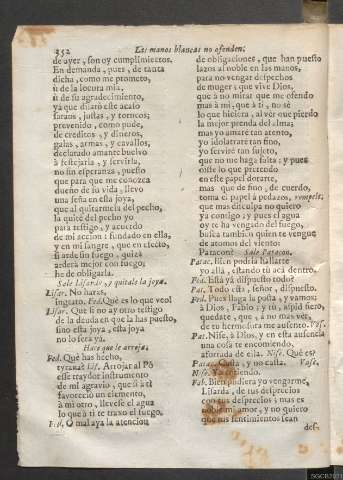 352
Las manos blancas no ofenden.
de ayer, son oy cumplimientos.
En demanda, pues, de tanta
dicha, como me prometo,
ù de la locura mia,
ù de su agradecimiento,
ya que disarè este acaso
saraos, justas, y torneos;
prevenido, como pude,
de creditos, y dineros,
galas, armas, y cavallos,
declarado amante buelvo
à festejarla, y servirla,
no sin esperanza, puesto
que para que me conozca
dueño de su vida, llevo
una seña en esta joya,
que al quitarmela del pecho,
la quitè del pecho yo
para testigo, y acuerdo
de mi accion: fundado en ella,
y en mi sangre, que en efecto,
si arde sin fuego, quizà
arderà mejor con fuego;
he de obligarla.
Sale Lisarda, y quitale la joya.
Lisar. No haràs,
ingrato. Fed. Què es lo que veo!
Lisar. Que si no ay otro testigo
de la deuda en que la has puesto,
sino esta joya, esta joya
no lo serà yà.
Hace que la arroja.
Fed. Què has hecho,
tyrana? Lis. Arrojar al Pò
esse traydor instrumento
de mi agravio, que si à ti
favoreciò un elemento,
à mi otro, llevese el agua
lo que à ti te traxo el fuego.
Fed. O mal aya la atencion
de obligaciones, que han puesto
lazos al noble en las manos,
para no vengar despechos
de muger; que vive Dios,
que à no mirar que me ofendo
mas à mi, que à ti, no sè
lo que hiciera, al vèr que pierdo
la mejor prenda del alma;
mas yo amarè tan atento,
yo idolatrarè tan fino,
yo servirè tan sujeto,
que no me haga falta: y pues
oìste lo que pretendo
en este papel dorarte,
mas que de fino, de cuerdo,
toma el papel à pedazos, rompele.
que mas disculpa no quiero
ya contigo; y pues el agua
oy te ha vengado del fuego,
busca tambien quien te vengue
de atomos del viento:
Paracon? Sale Paracon.
Parac. Bien podria hallarte
yo allà, estando tù acà dentro.
Fed. Està yà dispuesto todo?
Par. Todo està, señor, dispuesto.
Fed. Pues llega la posta, y vamos:
à Dios, Fabio; y tù, aspid fiero,
quedate, que, à no mas vèr,
de tu hermosura me ausento. Vas.
Pat. Nise, à Dios, y en esta ausencia
una cosa te encomiendo,
aforrada de ella. Nise. Què es?
Parac. Casta, y no casta. Vase.
Nise. Ya entiendo.
Fab. Bien pudiera yo vengarme,
Lisarda, de tus desprecios
con tus desprecios; mas es
noble mi amor, y no quiero
que tus sentimientos sean
des-